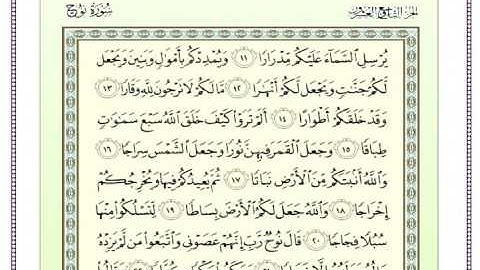 الجزء التاسع والعشرون سورة نوح
يُرْسِلِ السَّمَآءَ عَلَيْكُم مِّدْرَارًا ١١ وَيُمْدِدْكُم بِأَمْوَٰلٍ وَبَنِينَ وَيَجْعَل
لَّكُمْ جَنَّٰتٍ وَيَجْعَل لَّكُمْ أَنْهَٰرًا ١٢ مَّا لَكُمْ لَا تَرْجُونَ لِلَّهِ وَقَارًا ١٣
وَقَدْ خَلَقَكُمْ أَطْوَارًا ١٤ أَلَمْ تَرَوْا۟ كَيْفَ خَلَقَ ٱللَّهُ سَبْعَ سَمَٰوَٰتٍ
طِبَاقًا ١٥ وَجَعَلَ ٱلْقَمَرَ فِيهِنَّ نُورًا وَجَعَلَ ٱلشَّمْسَ سِرَاجًا ١٦
وَٱللَّهُ أَنۢبَتَكُم مِّنَ ٱلْأَرْضِ نَبَاتًا ١٧ ثُمَّ يُعِيدُكُمْ فِيهَا وَيُخْرِجُكُمْ
إِخْرَاجًا ١٨ وَٱللَّهُ جَعَلَ لَكُمُ ٱلْأَرْضَ بِسَاطًا ١٩ لِّتَسْلُكُوا۟ مِنْهَا
سُبُلًا فِجَاجًا ٢٠ قَالَ نُوحٌ رَّبِّ إِنَّهُمْ عَصَوْنِى وَٱتَّبَعُوا۟ مَن لَّمْ يَزِدْهُ